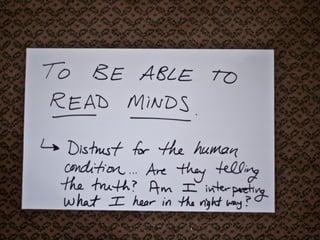 TO BE ABLE TO
READ MINDS.
↳ Distrust for the human
condition... Are they telling
the truth? Am I interpreting
what I hear in the right way?